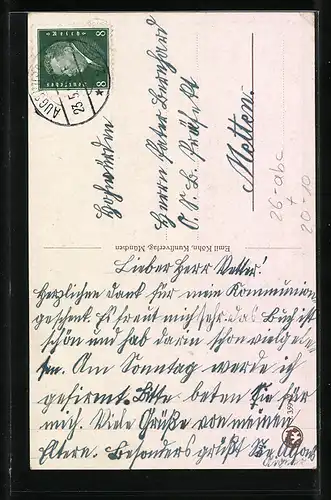 8 8
Deutsches Reich
AUGSBURG
23.5.
Hohwürden
Herrn Pater Bernhard
O. S. B. Präfekt
Metten.
26-abc
+
20-10
Emil Köhn, Kunstverlag, München
Lieber Herr Vetter!
Herzlichen Dank für mein Kommunion
geschenk. Es freut mich sehr. das Buch ist
schön und hab darin schon viel gele-
sen. Am Sonntag werde ich
gefirmt. Bitte beten Sie für
mich. Viele Grüße von meinen
Eltern. Besonders grüßt Sie